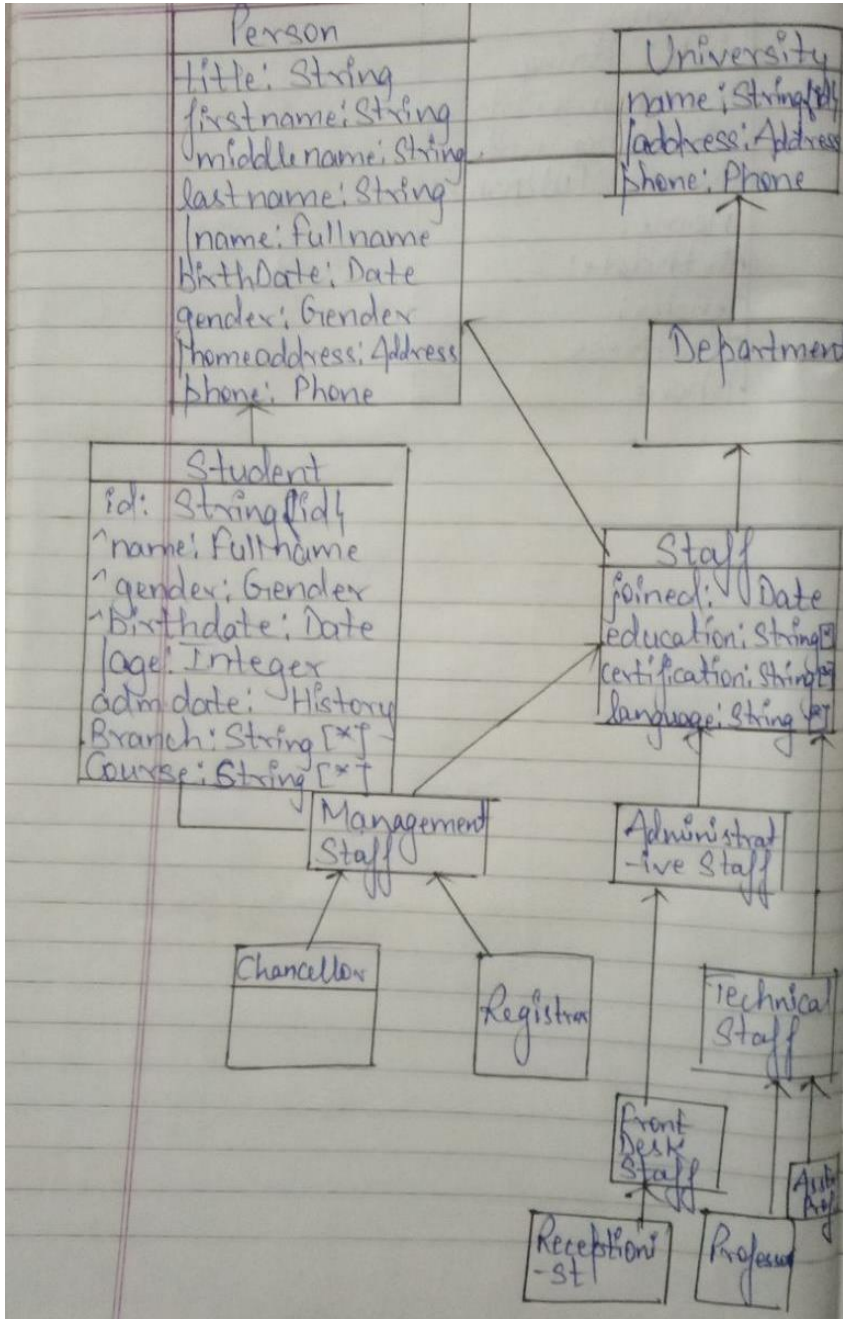 Person
title: String
firstname: String
middlename: String
lastname: String
/name: fullname
birthDate: Date
gender: Gender
/homeaddress: Address
phone: Phone
University
name: String{id}
/address: Address
phone: Phone
Department
Student
id: String{id}
^name: Fullname
^gender: Gender
^birthdate: Date
/age: Integer
adm.date: History
Branch: String [*]
Course: String [*]
Staff
joined: Date
education: String[*]
certification: String[*]
language: String [*]
Management
Staff
Administrat
-ive Staff
Chancellor
Registrar
Technical
Staff
Front
Desk
Staff
Asst.
Prof
Receptioni
-st
Professor